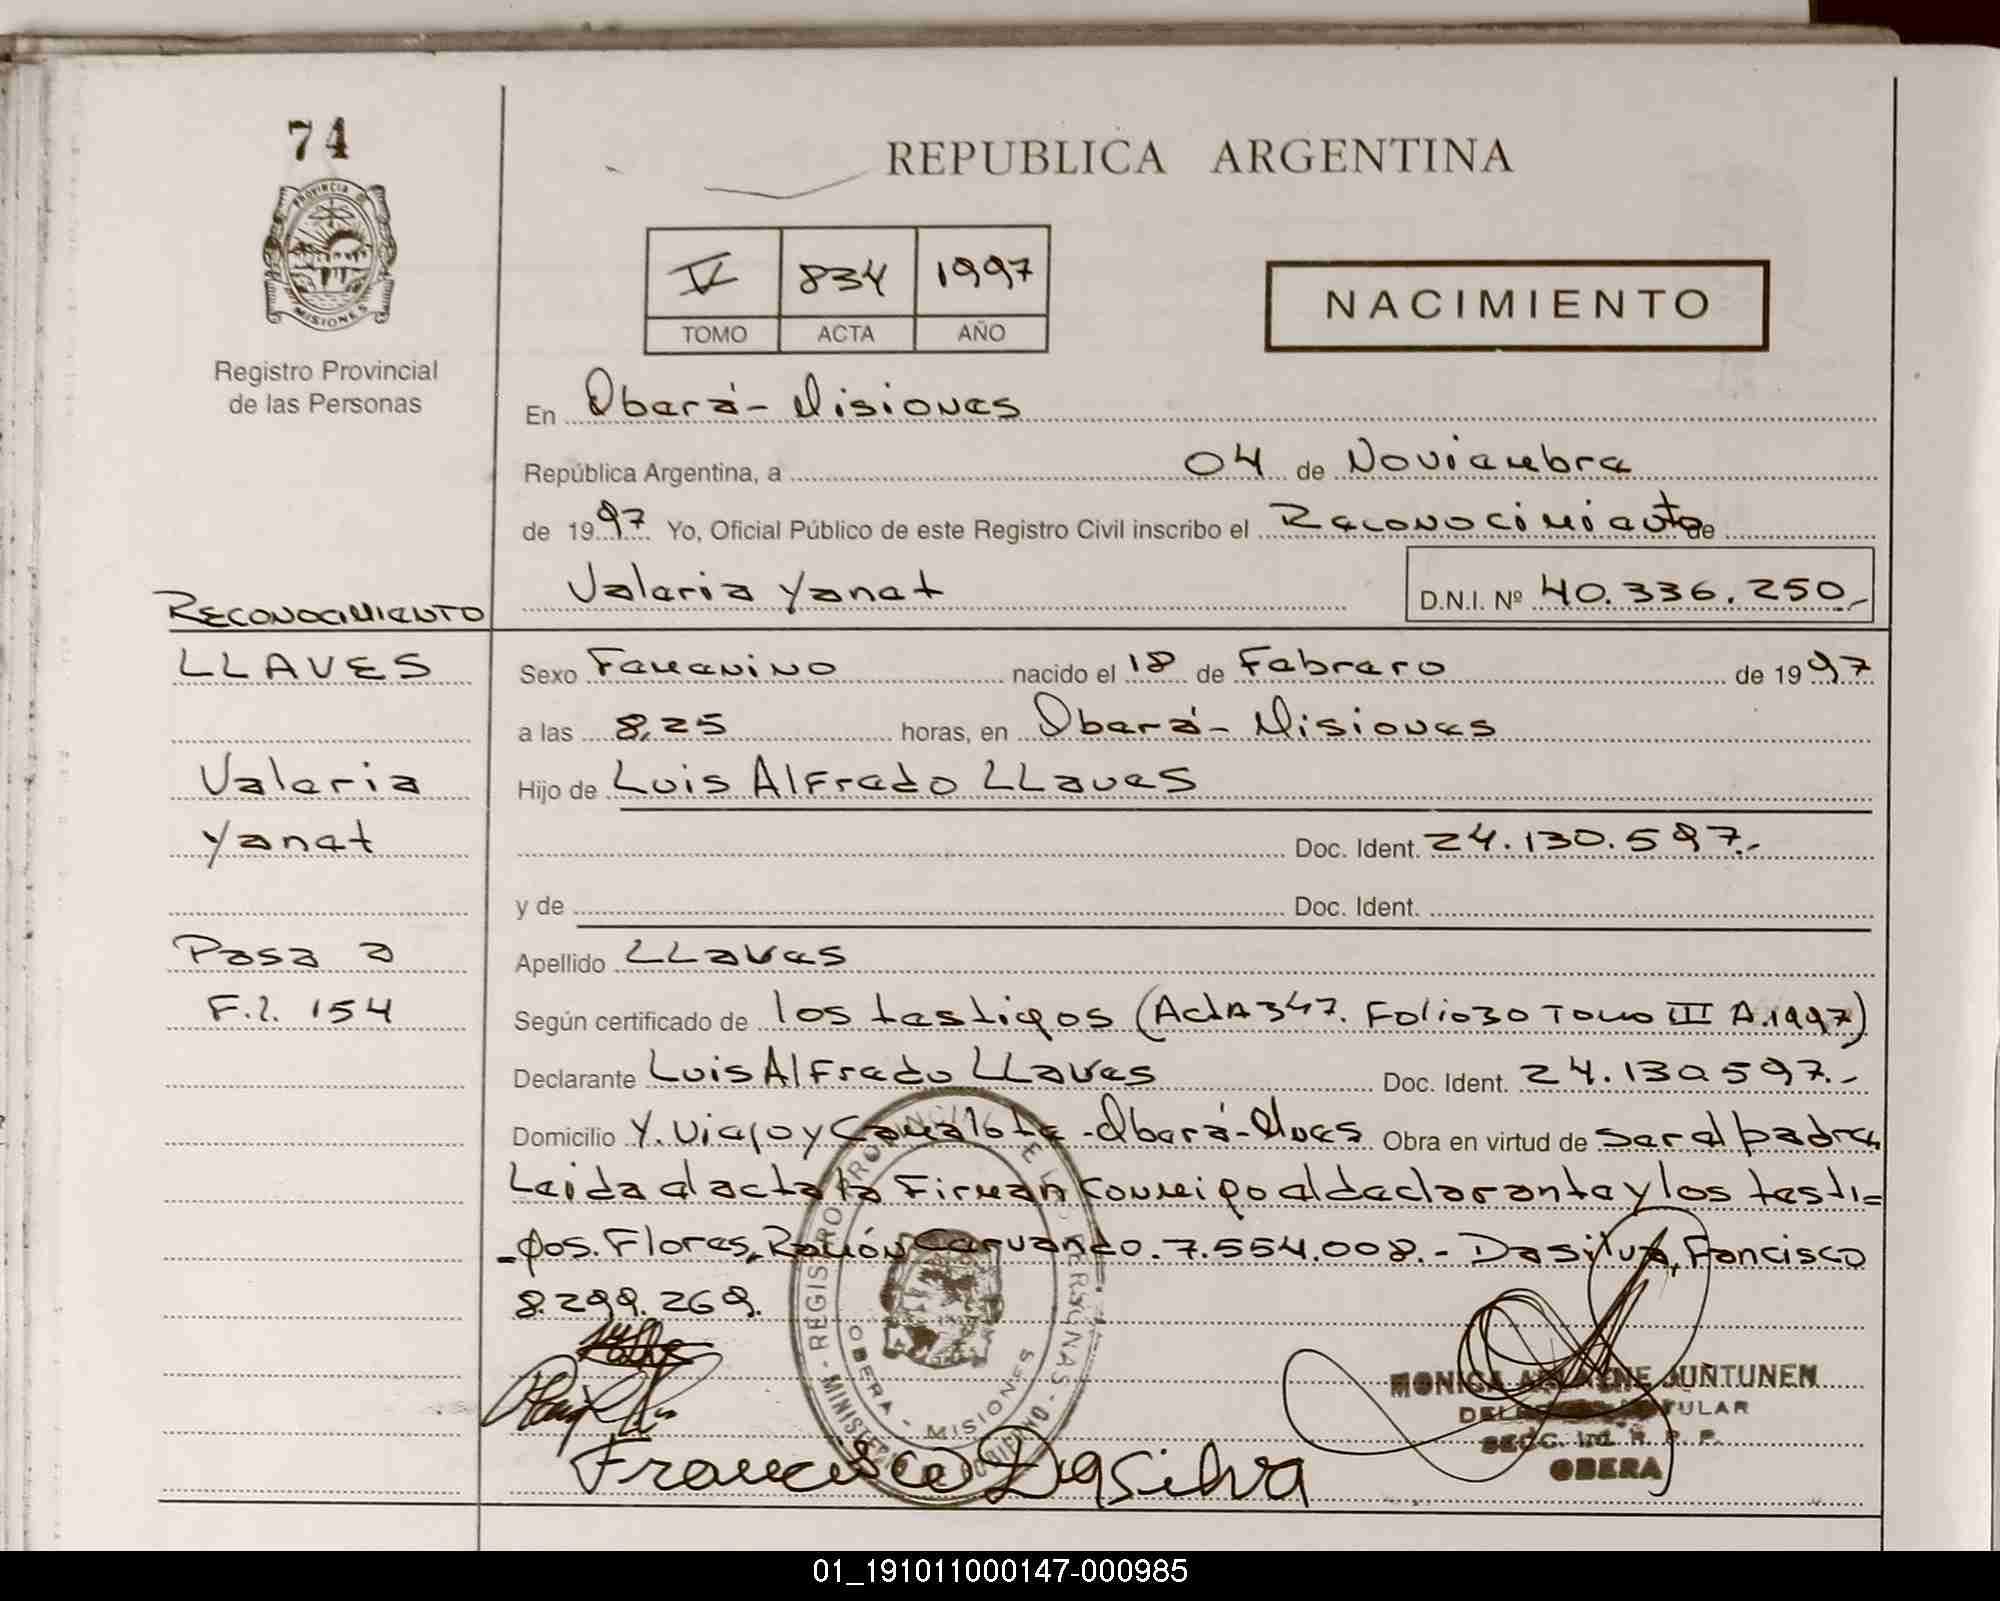 74
PROVINCIA DE
MISIONES
Registro Provincial
de las Personas
REPUBLICA ARGENTINA
IV 834 1997
TOMO ACTA AÑO
NACIMIENTO
En Oberá - Misiones
República Argentina, a 04 de Noviembre
de 1997 Yo, Oficial Público de este Registro Civil inscribo el Reconocimiento de
Valeria Yanet D.N.I. Nº 40.336.250.-
RECONOCIMIENTO
LLAVES
Valeria
Yanet
Pasa a
F.l. 154
Sexo Femenino nacido el 18 de Febrero de 1997
a las 8,25 horas, en Oberá - Misiones
Hijo de Luis Alfredo LLaves
Doc. Ident. 24.130.597.-
y de Doc. Ident.
Apellido LLaves
Según certificado de los testigos (Acta 347. Folio 30 Tomo III A. 1997)
Declarante Luis Alfredo LLaves Doc. Ident. 24.130.597.-
Domicilio Y. Viejo y - Oberá - Mnes Obra en virtud de ser el padre
Leida el acta la Firman conmigo el declarante y los testi=
-gos. Flores, Ramón 7.554.008.- Dasilva, Francisco
8.299.269.
REGISTRO PROVINCIAL DE LAS PERSONAS -
OBERA - MISIONES
Francisco Dasilva
MONICA JUNTUNEN
TITULAR
SECC. R. P. P.
OBERA
01_191011000147-000985